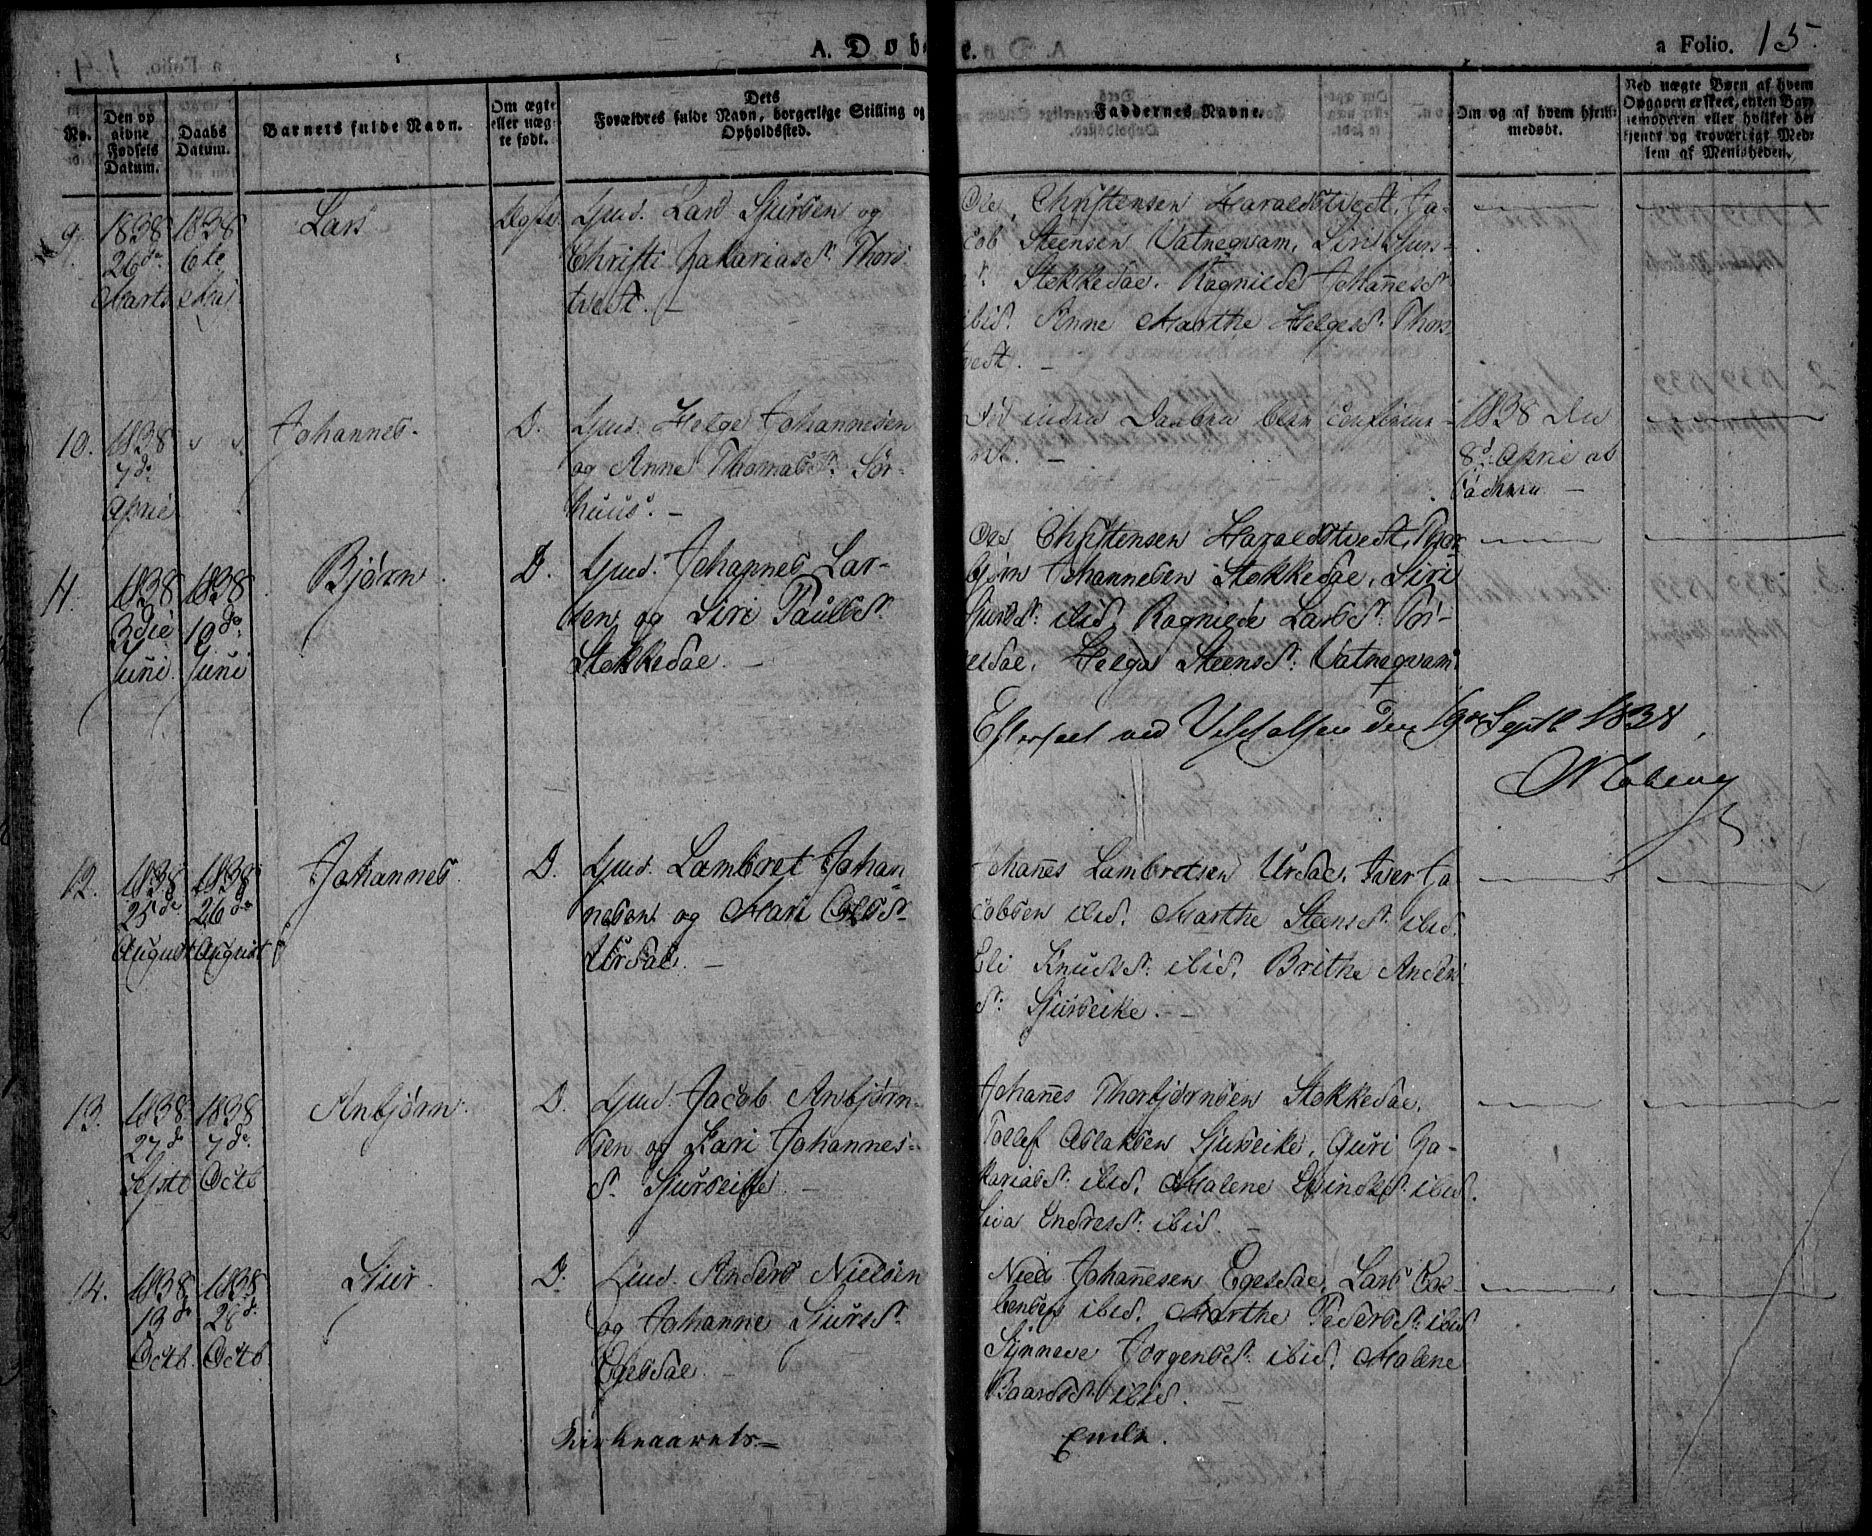 A. Døbte.
a Folio. 15.
No.
Den opgivne Fødsels Datum.
Daabs Datum.
Barnets fulde Navn.
Om ægte eller uægte født.
Dets Forældres fulde Navn, borgerlige Stilling og Opholdsted.
Faddernes Navne.
Om og af hvem hjemmedøbt.
Ved uægte Børn af hvem Opgaven er skeet, enten Barnemoderen eller hvilket bekjendt og troværdigt Medlem af Menigheden.
9.
1838
26de
Marts
1838
6te
Mai
Lars
Ægte
Gmd. Lars Sjursen og
Christi Zakariasd. Thors
tvedt. –
Ole Christensen Haraldstvedt, Ja-
cob Steensen Vatneqvam, Siri Sjurs-
d. Stokkedal. Ragnilde Johañesd.
ibid. Anne Marthe Helgesd. Thors
tvedt. –
10.
1838
7de
April
Johannes.
D.
Gmd. Helge Johannesen
og Anne Thomasd. Sør-
huus. –
1838 den
8d. April af
Faderen –
11.
1838
3die
Juni
1838
10de
Juni
Bjørn
D.
Gmd. Johannes Lar-
sen og Siri Paulsd.
Stokkedal. –
Ole Christensen Haraldstvedt, Thor
bjørn Johannesen Stokkedal, Siri
Sjursd. ibid. Ragnilde Larsd.
Helga Steensd. Vatneqvam
Efterseet ved Visitatsen den 19de Septb 1838.
12.
1838
25de
August
1838
26de
August
Johannes
D.
Gmd. Lambret Johan
nesen og Mari Olsd.
Urdal. –
Johañes Lambretsen Urdal, Iver Ja
cobsen ibid. Marthe Steensd. ibid.
Eli Knudsd. ibid. Brithe Anders
d. Sjurseike. –
13.
1838
27de
Septb
1838
7de
Octb
Anbjørn
D.
Gmd. Jacob Anbjørn
sen og Kari Johannes-
d. Sjurseike –
Johañes Thorbjørnsen Stokkedal,
Tollef Aslaksen Sjurseike, Guri Za-
kariasd. ibid. Malene Eivindsd. ibid.
Siva Endresd. ibid. –
14.
1838
13de
Octb.
1838
28de
Octb.
Sjur
D.
Gmd. Anders Nielsen
og Johanne Sjursd.
Egesdal. –
Niels Johañesen Egesdal, Lars
ibid. Marthe Pedersd. ibid
Synneve Jørgensd. ibid. Malene
Baardsd. ibid. –
Kirkeaarets Ende.